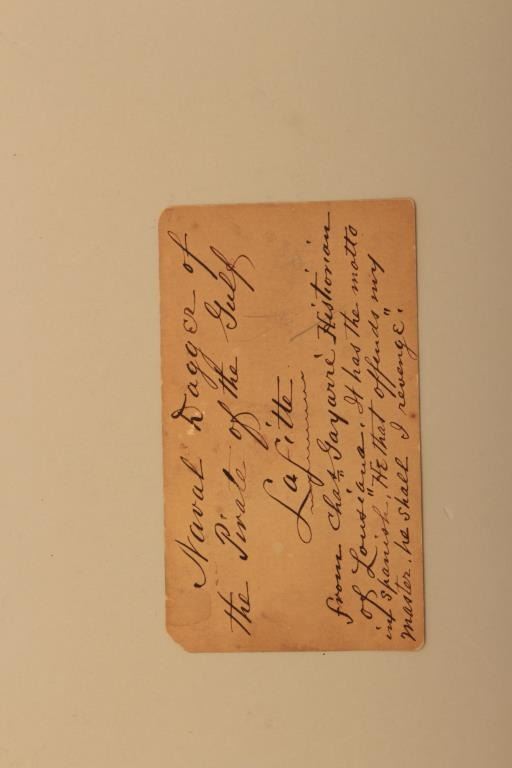 Naval Dagger of
the Pirate of the Gulf
Lafitte
from Chas Gayarré Historian
of Lousiana. It has the motto
in Spanish, "He that offends my
master, he shall I revenge".